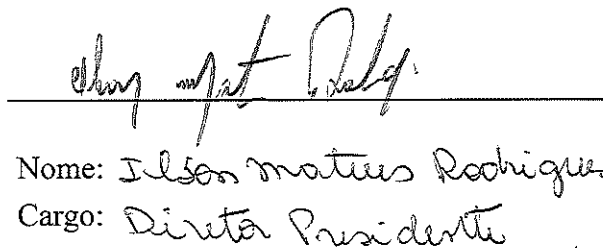 Nome: Ilson Mateus Rodrigues
Cargo: Diretor Presidente